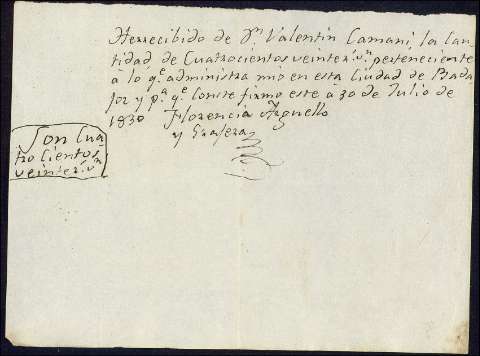 Herrecibido de Dn Valentin Camani, la Can-
tidad de Cuatrocientos veinter.s vn perteneciente
a lo qe administra mio en esta Ciudad de Bada
joz y pa qe Conste firmo este a 30 de Julio de
1830 Florencia Arguello
y Grafera
Son Cua
tro Cientos
veinter.s vn